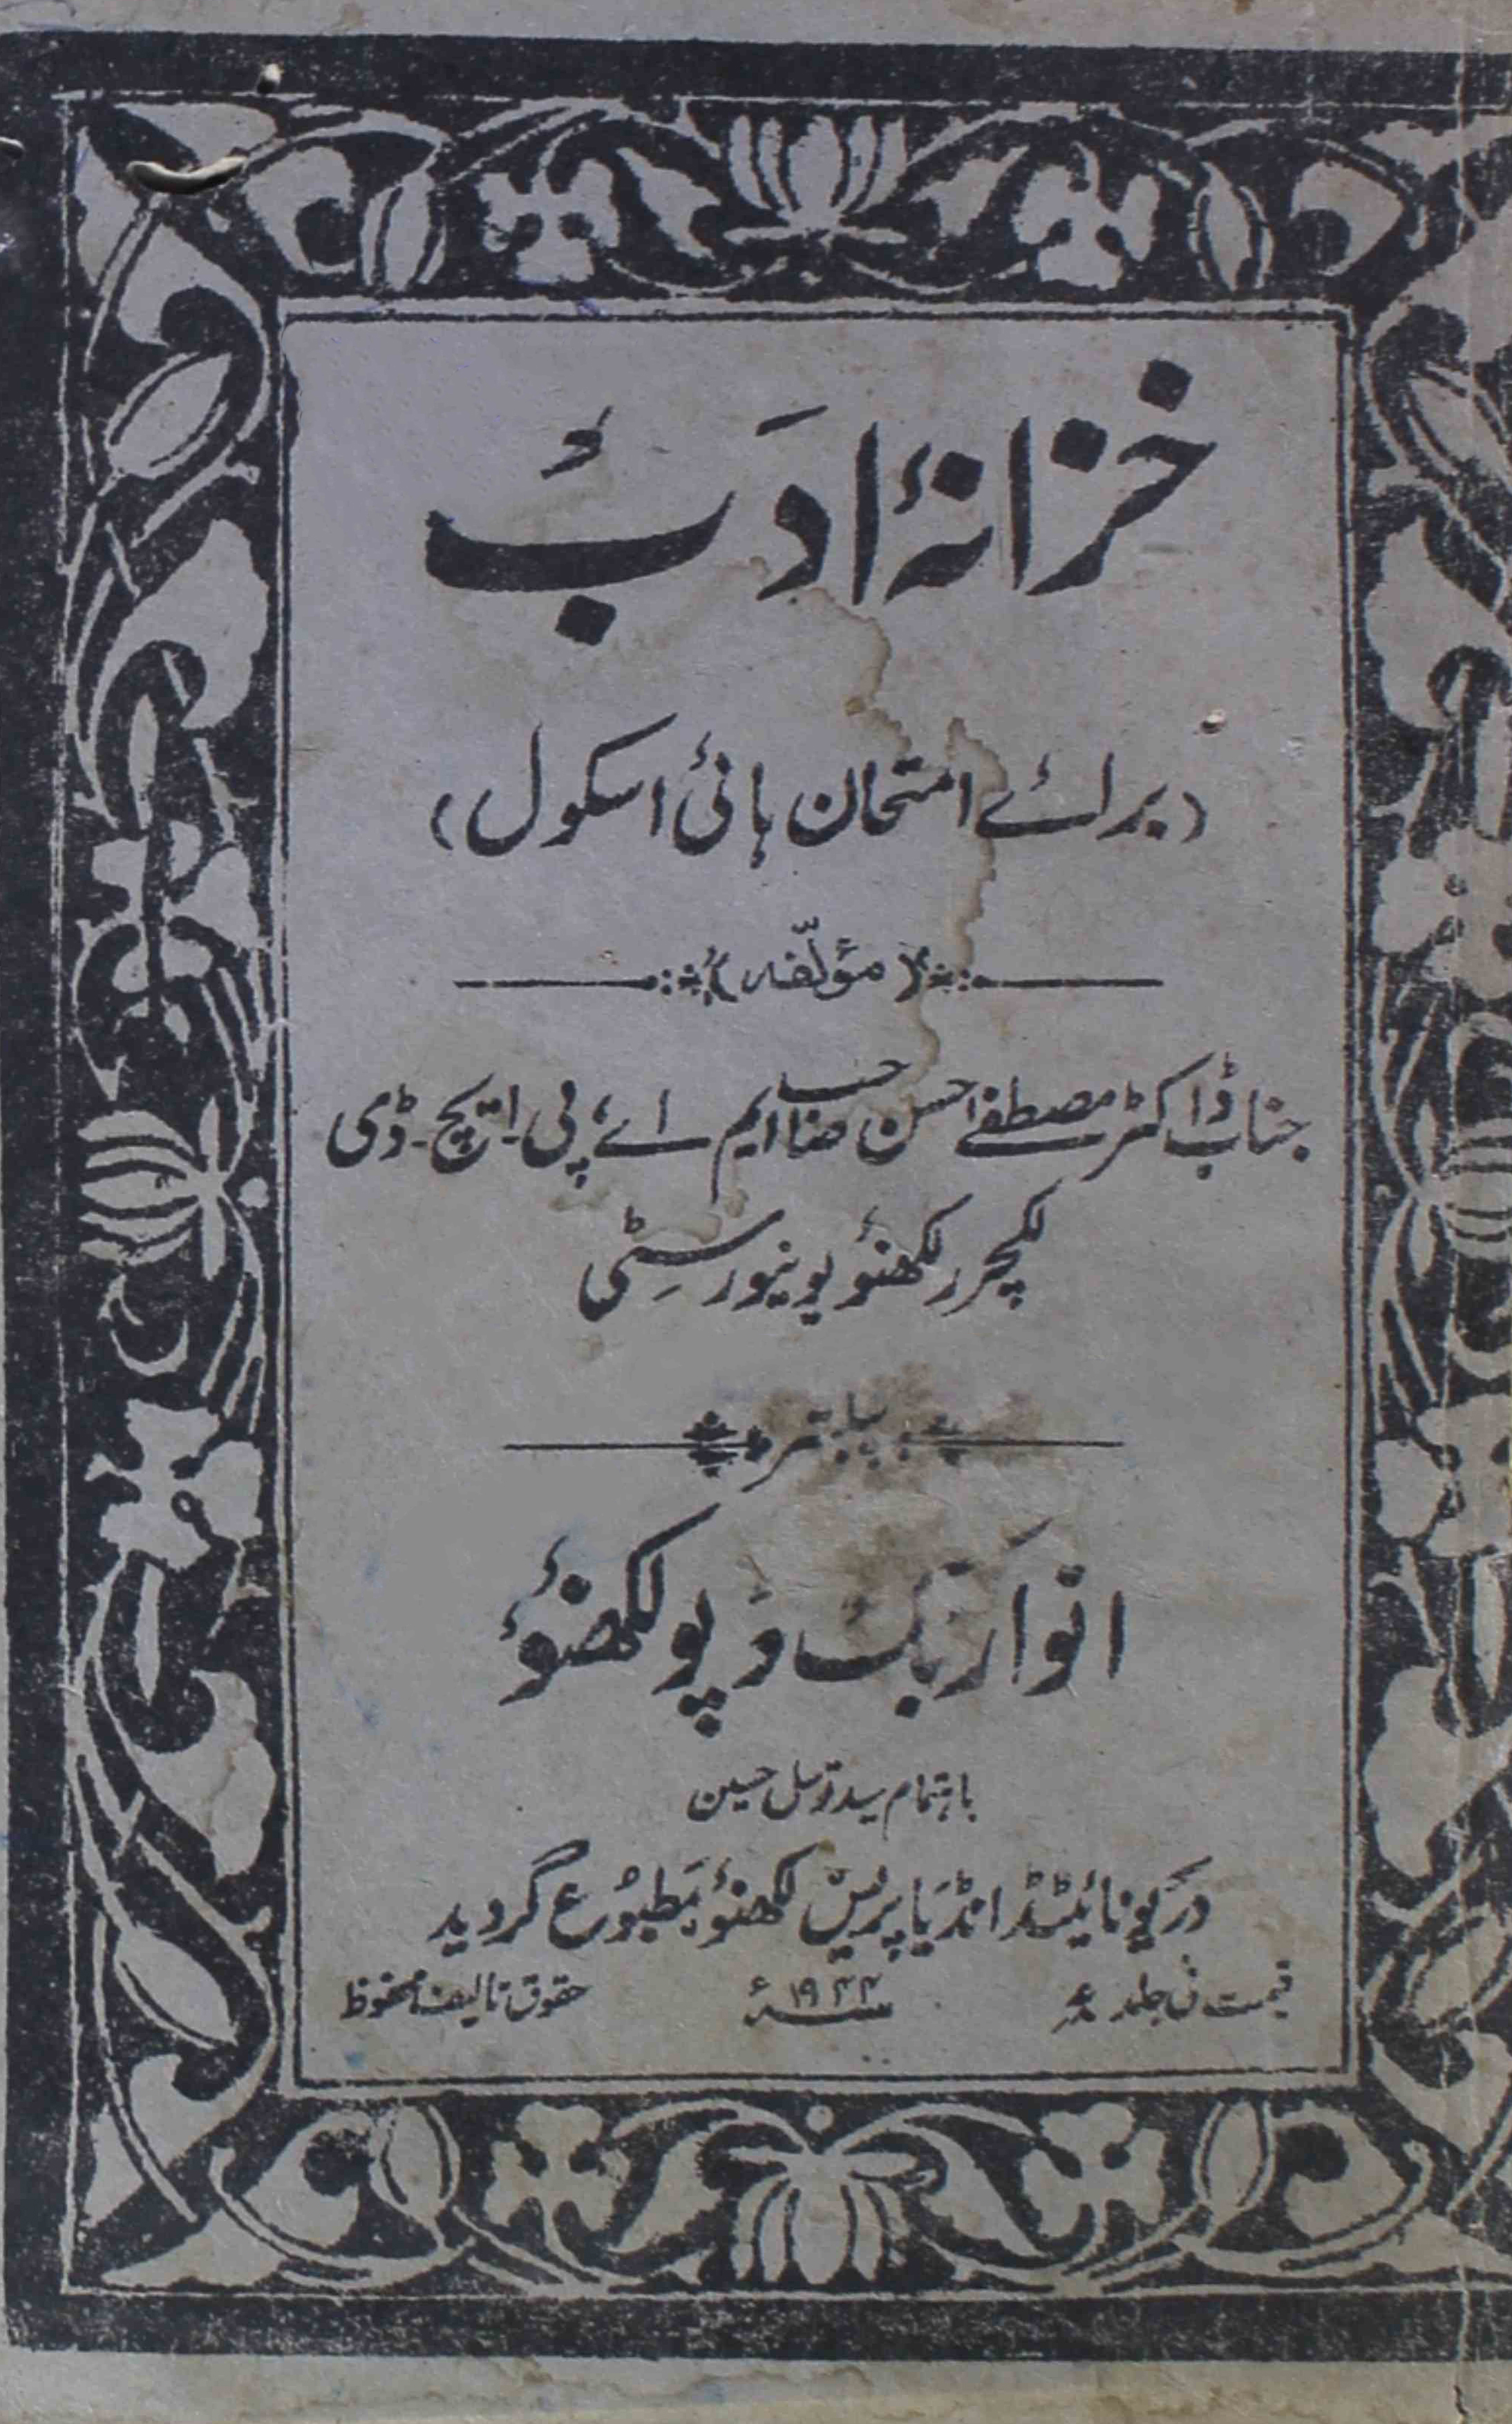 خزانۂ ادب
(برائے امتحان ہائی اسکول)
(مؤلّفہ)
جناب ڈاکٹر مصطفےٰ حسن صاحب ایم اے، پی۔ایچ۔ڈی
لکچرر لکھنؤ یونیورسٹی
پبلشر
انوار بک ڈپو لکھنؤ
باہتمام سید توسل حسین
در یونائیٹڈ انڈیا پریس لکھنؤ مطبوع گردید
قیمت فی جلد
سنہ ۱۹۴۴ء
حقوق تالیف محفوظ